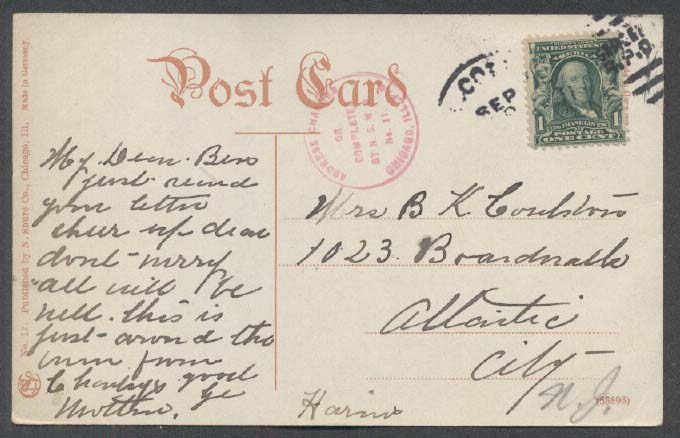 Post Card
No. 17. Published by N. Shure Co., Chicago, Ill. Made in Germany
ADDRESS
OR
COMPLETE
BY N. S. M
No. 11
CHICAGO, ILL.
SEP
UNITED STATES
OF AMERICA
1 1
FRANKLIN
POSTAGE
ONE CENT
My Dear
just recived
your letter
cheer up dear
dont worry
all will be
well. this is
just around the
from
Charleys good
Mrs B K Coulston
1023 Boardwalk
Atlantic
City
N.J.
(58898)